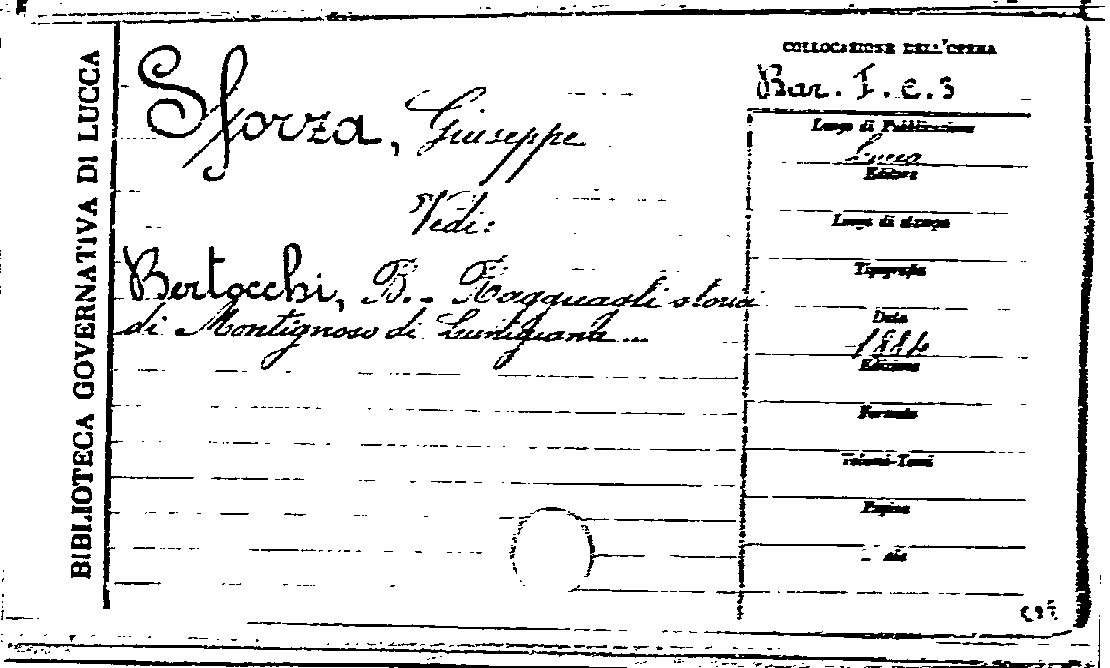 BIBLIOTECA GOVERNATIVA DI LUCCA
Sforza, Giuseppe
Vedi:
Bertocchi, B. - Ragguagli storici
di Montignoso di Lunigiana...
COLLOCAZIONE DELL'OPERA
Bar. F. c. 3
Luogo di Pubblicazione
Lucca
Editore
Luogo di stampa
Tipografia
Data
Edizione
Formato
Volumi-Tomi
Pagine